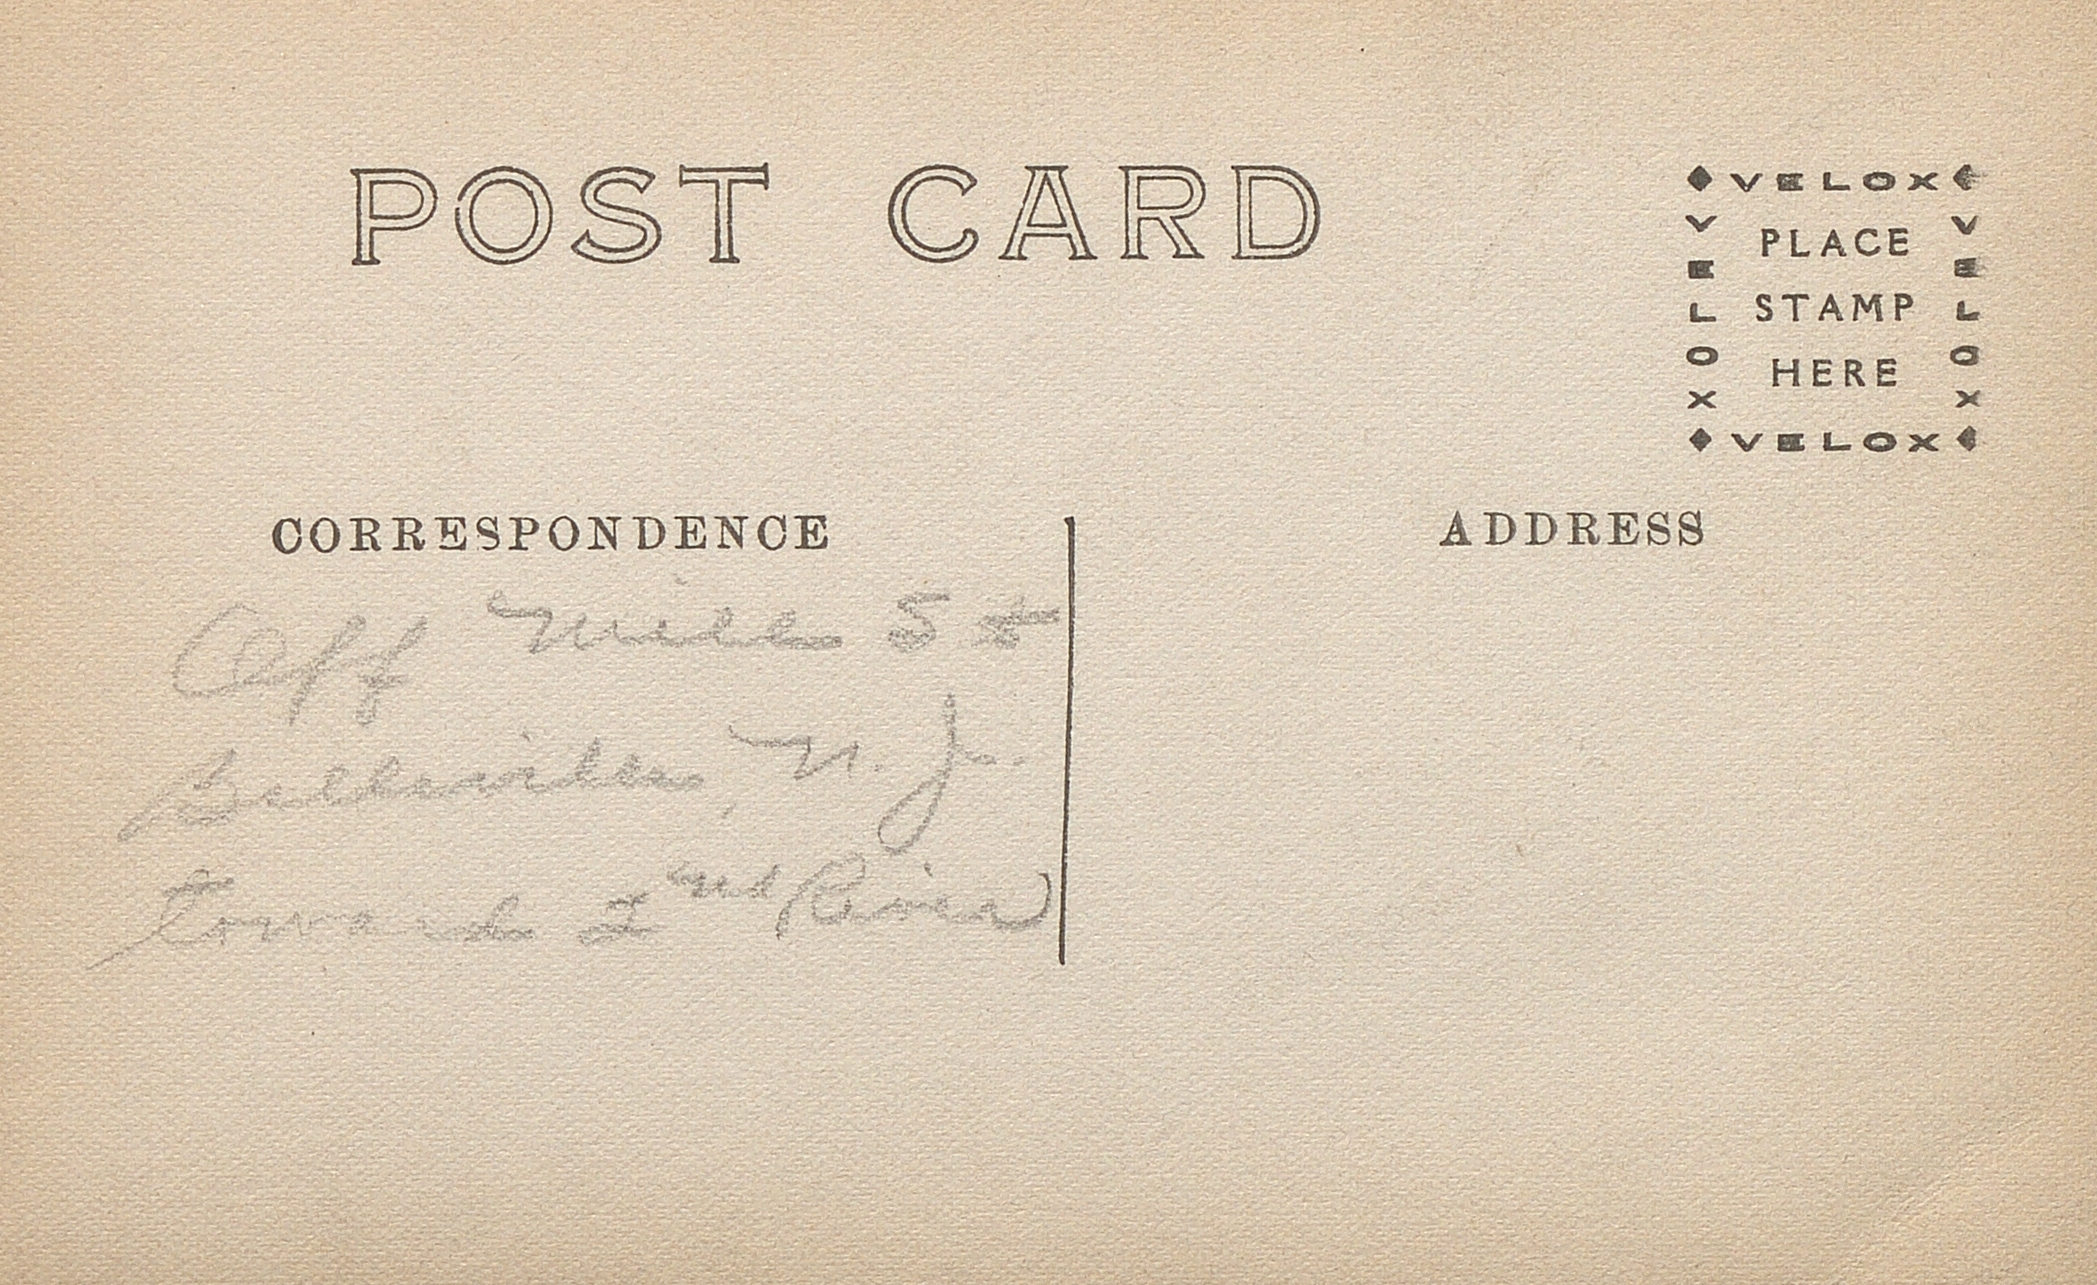 POST CARD
VELOX
VELOX
VELOX
PLACE
STAMP
HERE
VELOX
CORRESPONDENCE
ADDRESS
Off Mill St
Belleville, N. J.
toward 2nd River